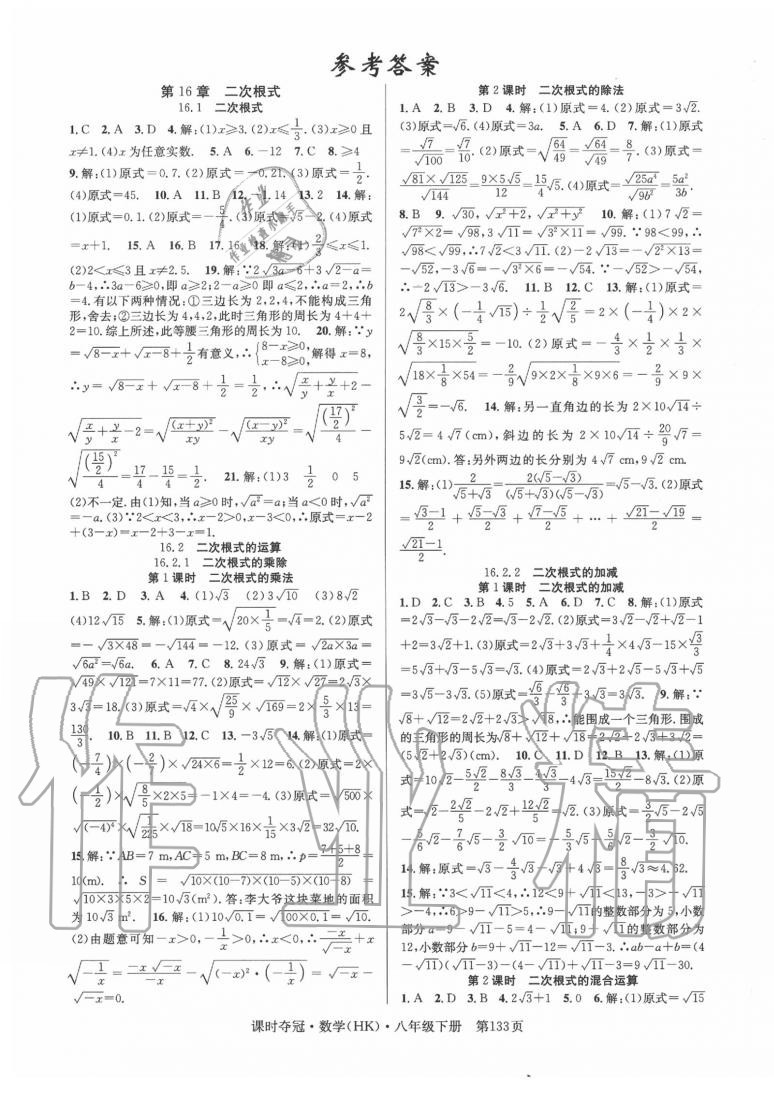 参考答案
第16章 二次根式
16.1 二次根式
1.C 2.A 3.D 4.解:(1)x≥3.(2)x≤1/3.(3)x≥0且
x≠1.(4)x为任意实数. 5.A 6.-12 7.C 8.≥4
9.解:(1)原式=0.7.(2)原式=-0.21.(3)原式=1/2.
(4)原式=45. 10.A 11.B 12.-1.14 13.2 14.解:
(1)原式=0.1.(2)原式=-5/4.(3)原式=√5-2.(4)原式
=x+1. 15.A 16.B 17.16 18.解:(1)2/3≤x≤1.
(2)2<x≤3且x≠2.5. 19.解:∵2√(3a-6)+3√(2-a)=
b-4,∴3a-6≥0,即a≥2;2-a≥0即a≤2,∴a=2,∴b
=4.有以下两种情况:①三边长为2,2,4,不能构成三角
形,舍去;②三边长为4,4,2,此时三角形的周长为4+4+
2=10.综上所述,此等腰三角形的周长为10. 20.解:∵y
=√(8-x)+√(x-8)+1/2有意义,∴{8-x≥0, x-8≥0, 解得x=8,
∴y=√(8-x)+√(x-8)+1/2=1/2,∴原式=√(x/y+y/x+2)-
√(x/y+y/x-2)=√((x+y)²/xy)-√((x-y)²/xy)=√((17/2)²/4)-
√((15/2)²/4)=17/4-15/4=1/2. 21.解:(1)3 1/2 0 5
(2)不一定.由(1)知,当a≥0时,√a²=a;当a<0时,√a²
=-a.(3)∵2<x<3,∴x-2>0,x-3<0,∴原式=x-2
+(3-x)=x-2+3-x=1.
16.2 二次根式的运算
16.2.1 二次根式的乘除
第1课时 二次根式的乘法
1.B 2.D 3.A 4.(1)√3 (2)3√10 (3)8√2
(4)12√15 5.解:(1)原式=√(20×1/5)=√4=2.(2)原式
=-√(3×48)=-√144=-12.(3)原式=√(2a×3a)=
√6a²=√6a. 6.A 7.C 8.24√3 9.解:(1)原式=
√49×√121=7×11=77.(2)原式=√12×√27=2√3×
3√3=18.(3)原式=√4×√(25/9)×√169=2×5/3×13=
130/3. 10.B 11.B 12.C 13.-3√5 14.解:(1)原式=
(-7/4)×(-2/7)×√(24×6)=1/2×12=6.(2)原式=2×
(-1/2)×√(8/5×2×5)=-1×4=-4.(3)原式=√500×
√(-4)⁴×√(1/225)×√18=10√5×16×1/15×3√2=32√10.
15.解:∵AB=7 m,AC=5 m,BC=8 m,∴p=(7+5+8)/2=
10(m). ∴ S = √(10×(10-7)×(10-5)×(10-8)) =
√(10×3×5×2)=10√3(m²).答:李大爷这块菜地的面积
为10√3 m². 16.解:(1)10√0.1=√(100×0.1)=√10.
(2)由题意可知-x>0,-1/x>0,∴x<0,∴(-x)/√(-x)+x
√(-1/x)=(-x√(-x))/(-x)-√((-x)²·(-1/x))=√(-x)-
√(-x)=0.
第2课时 二次根式的除法
1.A 2.B 3.D 4.解:(1)原式=4.(2)原式=3√2.
(3)原式=√6.(4)原式=3a. 5.A 6.C 7.解:(1)原式=
√7/√100=√7/10.(2)原式=√(64/49)=√64/√49=8/7.(3)原式=
(√81×√125)/√144=(9×5√5)/12=15/4√5.(4)原式=√25a⁴/√9b²=5a²/3b.
8.B 9.√30,√(x²+2),√(x²+y²) 10.解:(1)7√2=
√(7²×2)=√98,3√11=√(3²×11)=√99.∵98<99,∴
√98<√99,∴7√2<3√11.(2)-2√13=-√(2²×13)=
-√52,-3√6=-√(3²×6)=-√54.∵-√52>-√54,
∴-2√13>-3√6. 11.B 12.C 13.解:(1)原式=
2√(8/3)×(-1/4√15)÷1/2√(2/5)=2×(-1/4)×2×
√(8/3×15×5/2)=-10.(2)原式=-4/3×1/2×1/3×
√(18×1/8×54)=-2/9√(9×2×1/8×9×6)=-2/9×9×
√(3/2)=-√6. 14.解:另一直角边的长为2×10√14÷
5√2=4√7(cm),斜边的长为2×10√14÷20/9√7=
9√2(cm).答:另外两边的长分别为4√7 cm,9√2 cm.
15.解:(1)2/(√5+√3)=2(√5-√3)/((√5+√3)(√5-√3))=√5-√3.(2)原式
=(√3-1)/2+(√5-√3)/2+(√7-√5)/2+…+(√21-√19)/2=
(√21-1)/2.
16.2.2 二次根式的加减
第1课时 二次根式的加减
1.D 2.C 3.B 4.5 5.A 6.D 7.C 8.解:(1)原式
=2√3-√3-2√2=√3-2√2.(2)原式=2√3+2-√2-1
+2=3√2+1.(3)原式=2√3+3√3+1/4×4√3-15×√3/3
=5√3+√3-5√3=√3.(4)原式=2√3+2√5-5√3+√5
=3√5-3√3.(5)原式=√6/3-√6/3+3√3=3√3. 9.解:∵
√8+√12=2√2+2√3>√18,∴能围成一个三角形.围成
的三角形的周长为√8+√12+√18=2√2+2√3+3√2=
(5√2+2√3)(cm). 10.C 11.D 12.B 13.解:(1)原
式=10√2-5√2/2-8√3/3-4√3/3-4√3=15√2/2-8√3.(2)原
式=√2-2√2/5-2√2+12√2/5=√2.(3)原式=3√5/2-2√5-
5√6/6-2√2-7√6/6-√5/2-3√2=-√5-2√6-3√10.
14.解:原式=√3-4/3√3+√3+2√3=8/3√3≈4.62.
15.解:∵3<√11<4,∴12<9+√11<13,-3>-√11
>-4,∴6>9-√11>5,∴9-√11的整数部分为5,小数
部分a=9-√11-5=4-√11;9+√11的整数部分为
12,小数部分b=9+√11-12=√11-3.∴ab-a+b=(4
-√11)(√11-3)-(4-√11)+√11-3=8√11-30.
第2课时 二次根式的混合运算
1.A 2.C 3.A 4.2√3+1 5.0 6.解:(1)原式=√15
课时夺冠·数学(HK)·八年级下册 第133页
作业精